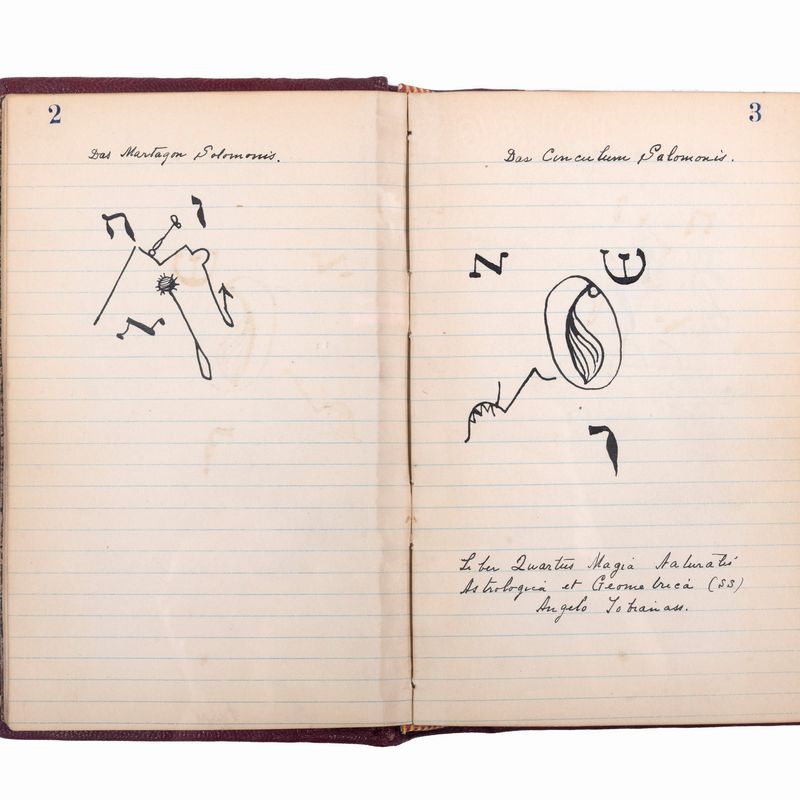 2
Das Martagon Solomonis.
ח ו
N
3
Das Cinculum Salomonis.
N E
ר
Liber Quartus Magia Naturalis
Astrologica et Geometrica (SS)
Angelo